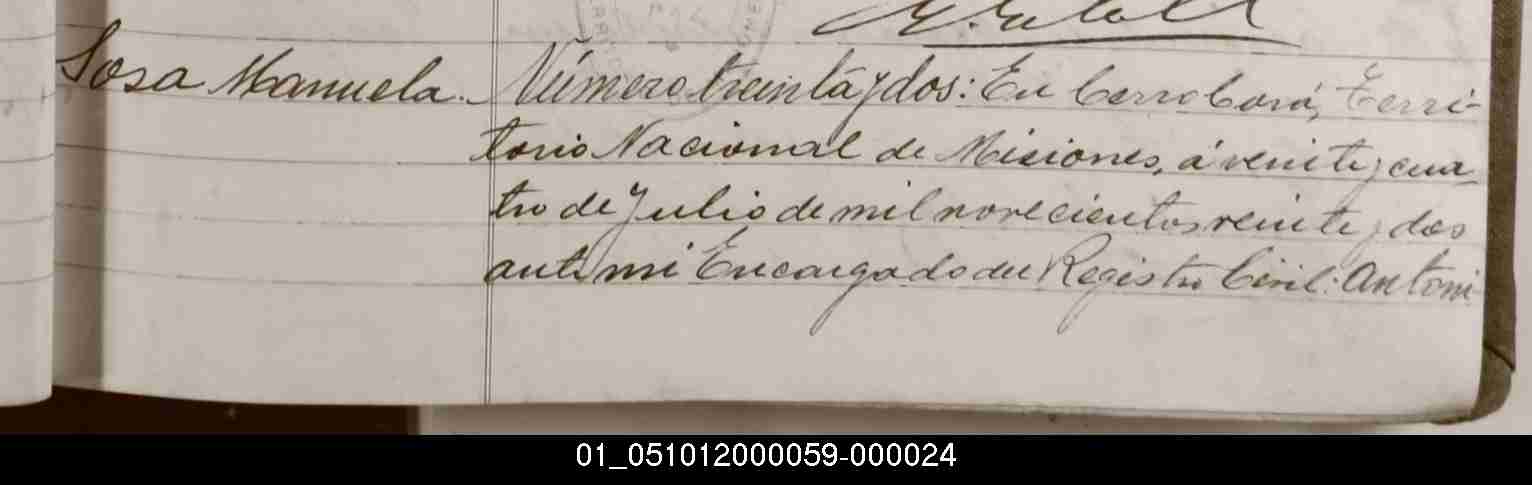 Sosa Manuela. Número treinta y dos: En Cerro Corá, Terri-
torio Nacional de Misiones, á veinte y cua
tro de Julio de mil novecientos veinte y dos
ante mi Encargado del Registro Civil: Antoni
01_051012000059-000024